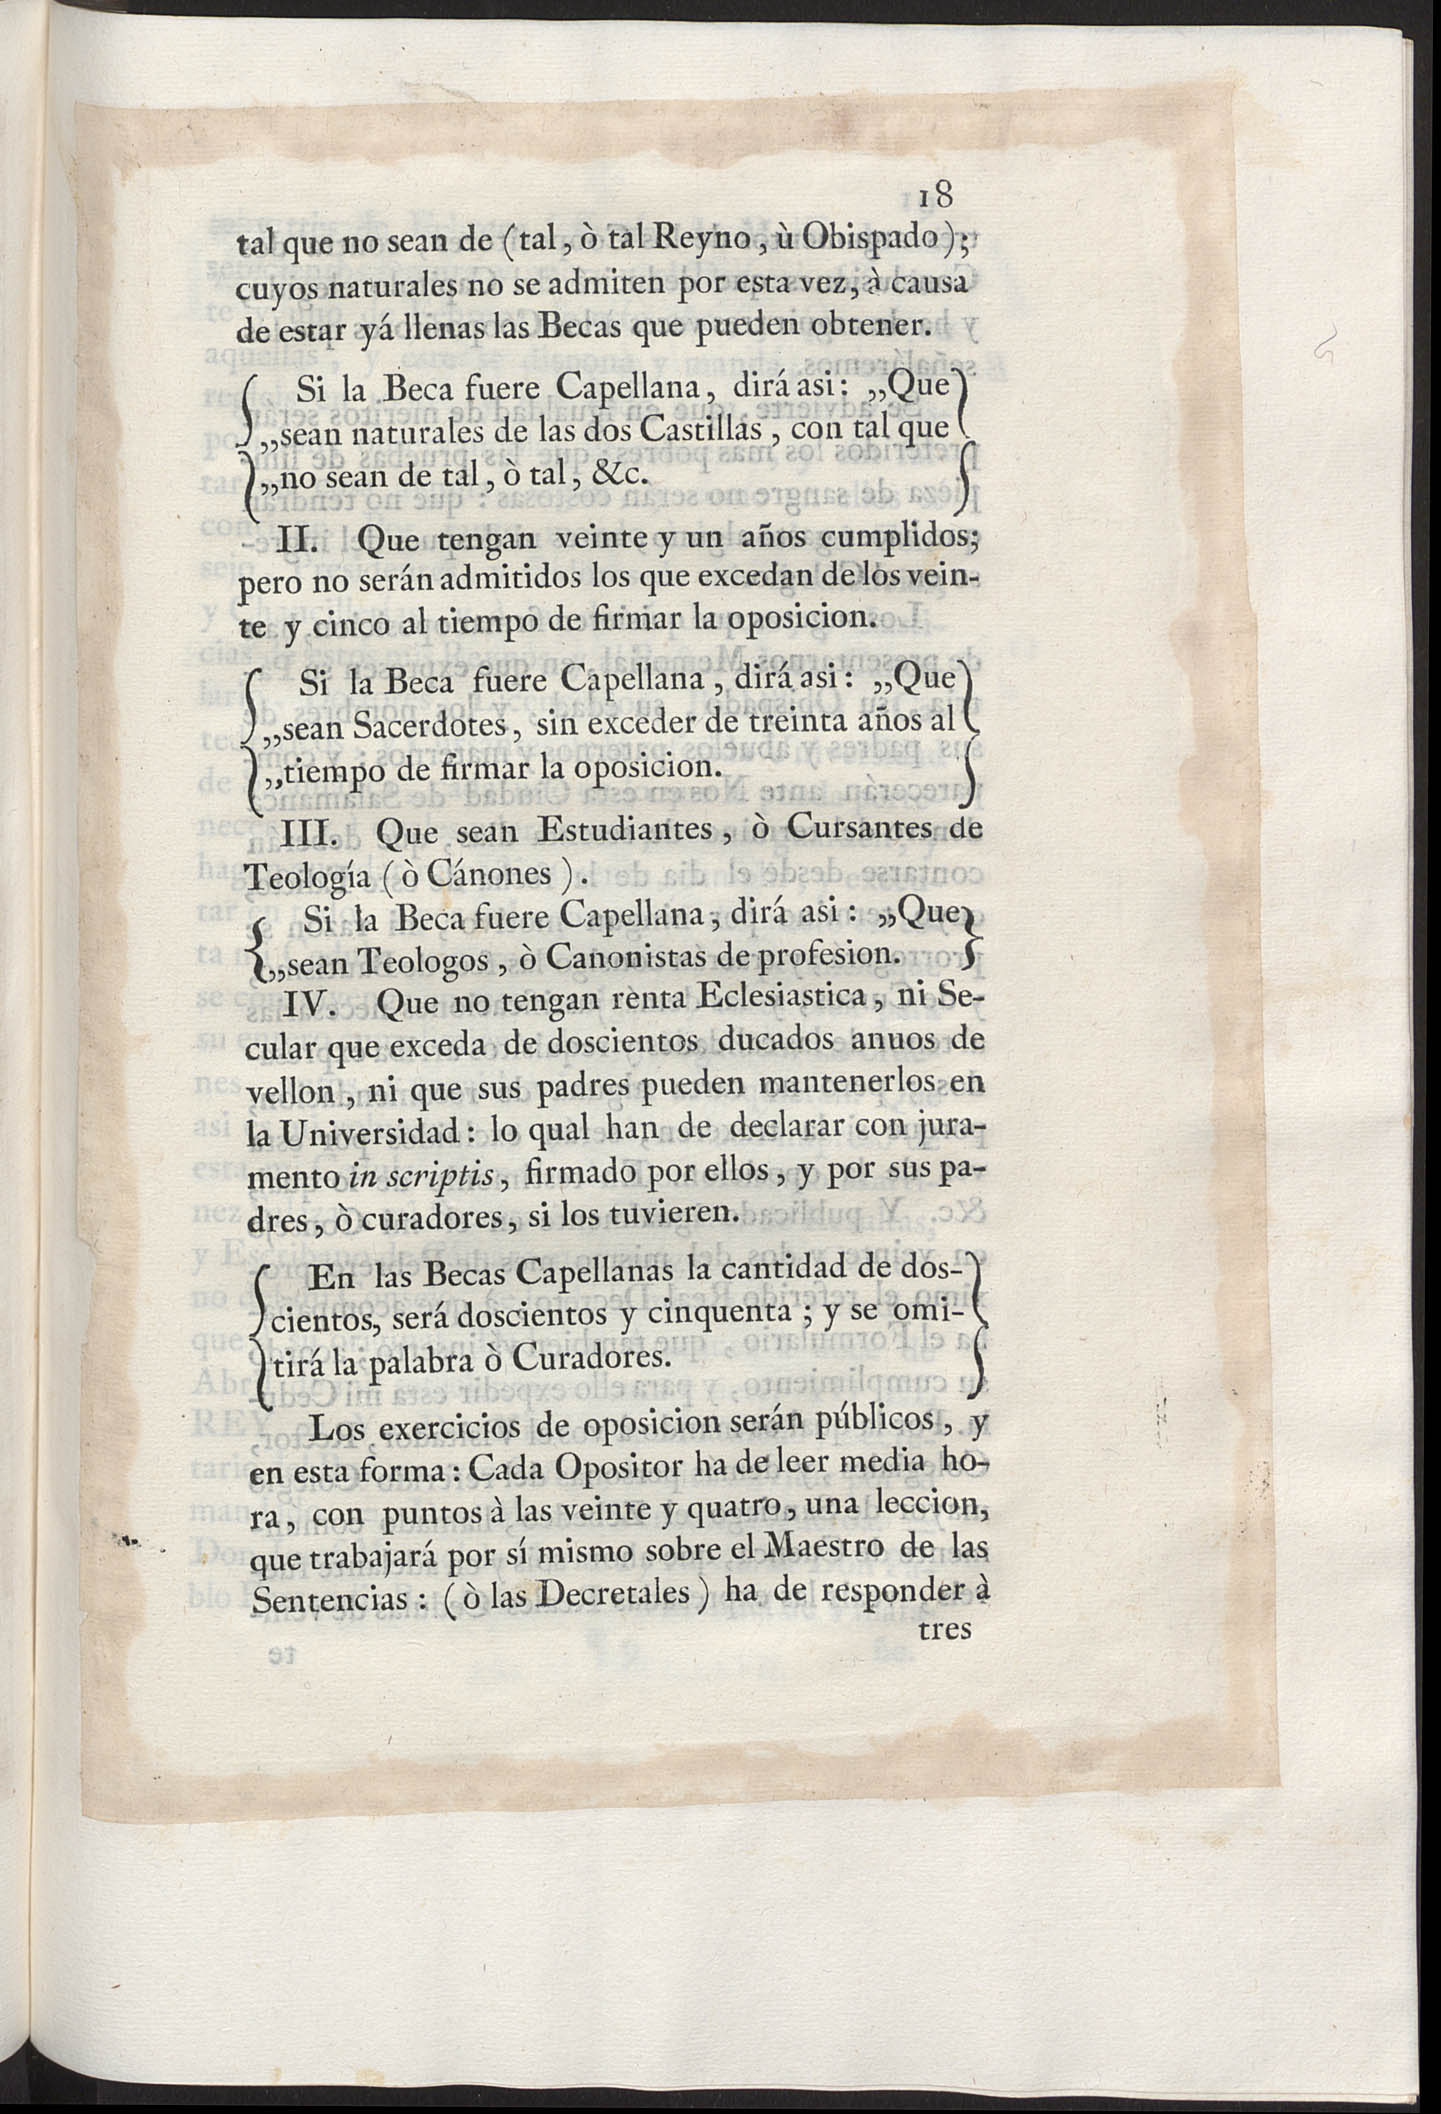 18
tal que no sean de (tal, ò tal Reyno, ù Obispado);
cuyos naturales no se admiten por esta vez, à causa
de estar yá llenas las Becas que pueden obtener.
Si la Beca fuere Capellana, dirá asi: „Que
„sean naturales de las dos Castillas, con tal que
„no sean de tal, ò tal, &c.
II. Que tengan veinte y un años cumplidos;
pero no serán admitidos los que excedan de los vein-
te y cinco al tiempo de firmar la oposicion.
Si la Beca fuere Capellana, dirá asi: „Que
„sean Sacerdotes, sin exceder de treinta años al
„tiempo de firmar la oposicion.
III. Que sean Estudiantes, ò Cursantes de
Teología (ò Cánones).
Si la Beca fuere Capellana, dirá asi: „Que
„sean Teologos, ò Canonistas de profesion.
IV. Que no tengan renta Eclesiastica, ni Se-
cular que exceda de doscientos ducados anuos de
vellon, ni que sus padres pueden mantenerlos en
la Universidad: lo qual han de declarar con jura-
mento in scriptis, firmado por ellos, y por sus pa-
dres, ò curadores, si los tuvieren.
En las Becas Capellanas la cantidad de dos-
cientos, será doscientos y cinquenta; y se omi-
tirá la palabra ò Curadores.
Los exercicios de oposicion serán públicos, y
en esta forma: Cada Opositor ha de leer media ho-
ra, con puntos à las veinte y quatro, una leccion,
que trabajará por sí mismo sobre el Maestro de las
Sentencias: (ò las Decretales) ha de responder à
tres